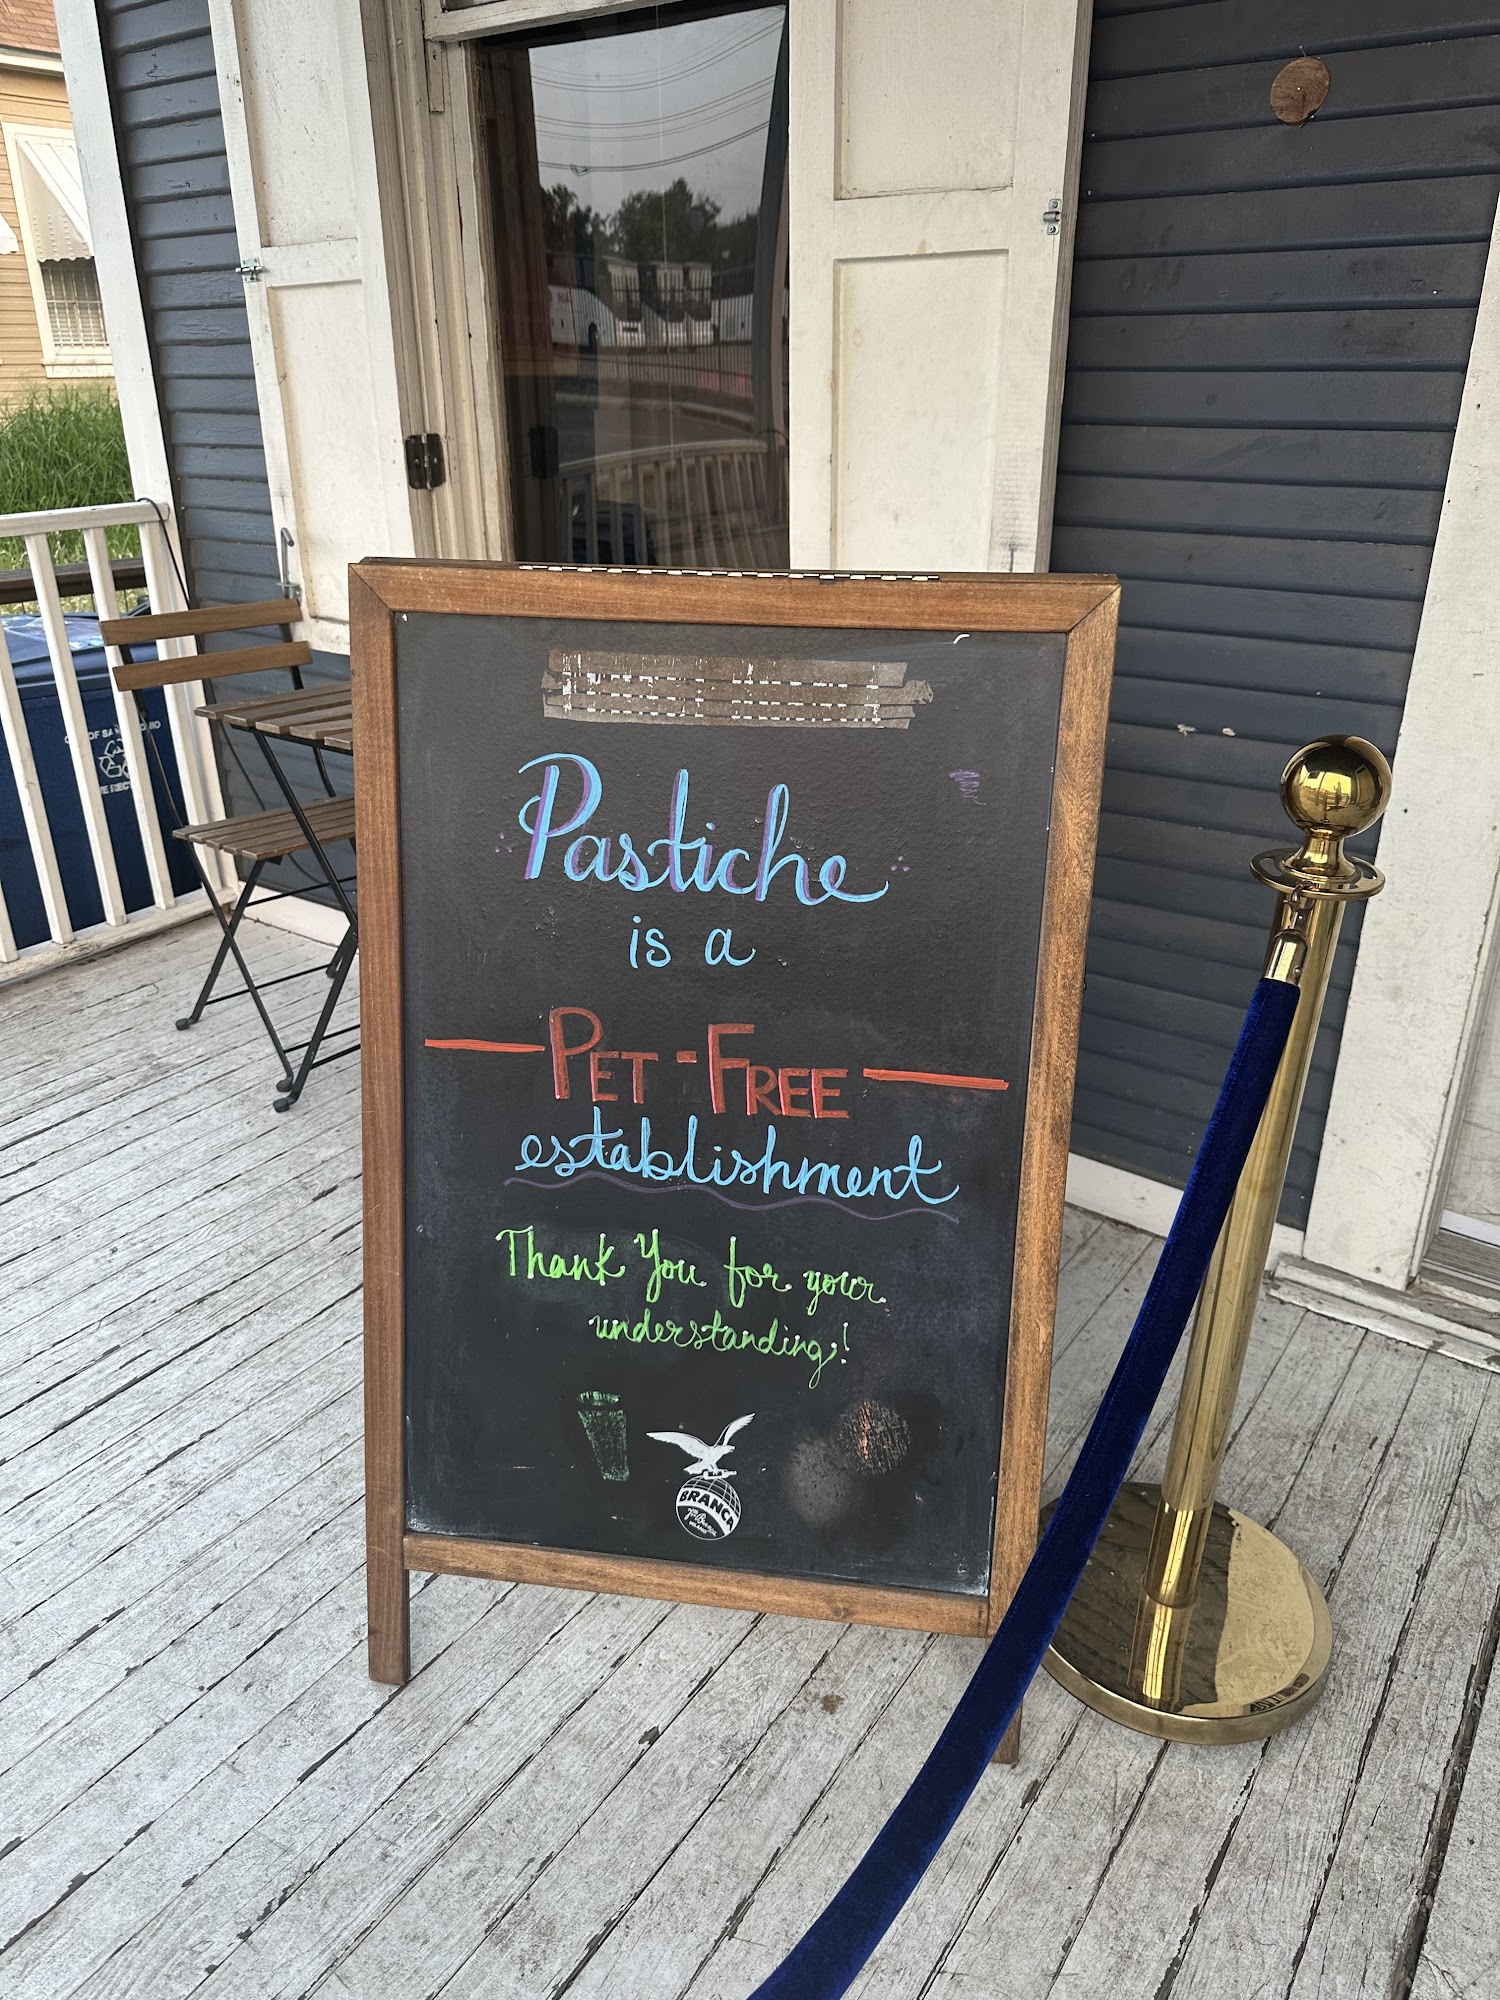 Pastiche
is a
PET-FREE
establishment
Thank You for your
understanding!
BRANCA
MILANO